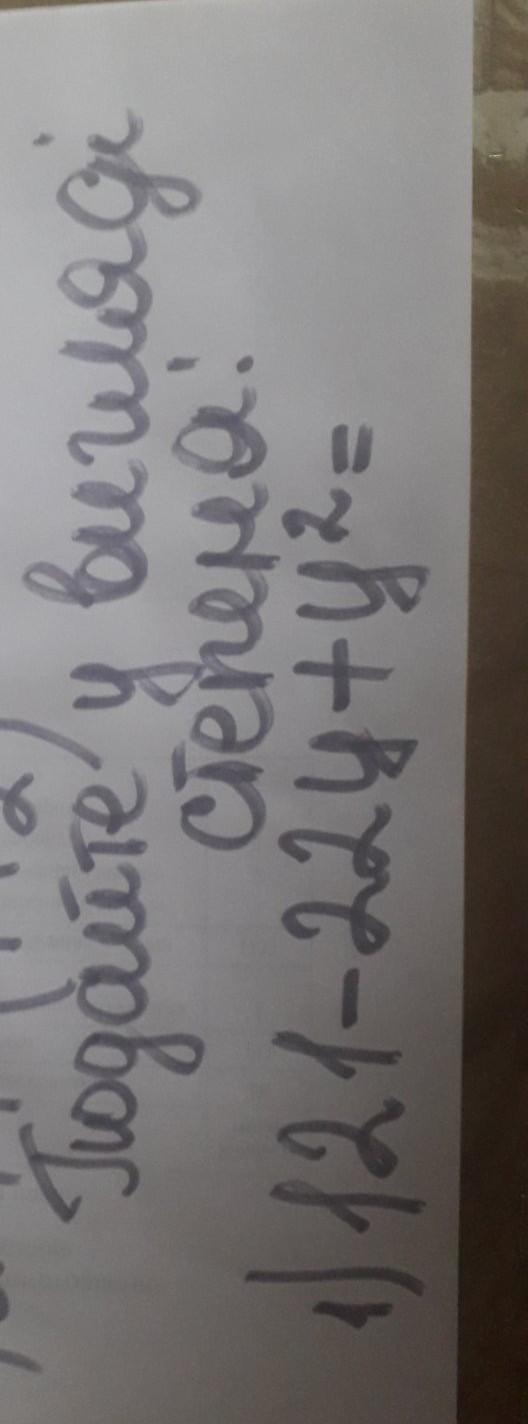 Подайте у вигляді
степеня:
1) 121-22y+y²=